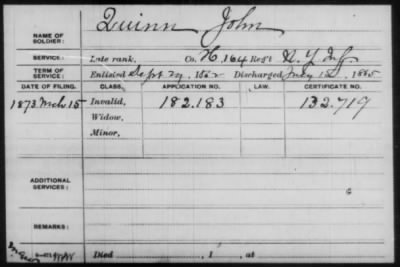 Quinn John
NAME OF SOLDIER:
SERVICE: Late rank, Co. H, 164 Reg't N. Y. Inf
TERM OF SERVICE: Enlisted Sept 29, 1862 Discharged 15, 1865
DATE OF FILING. CLASS. APPLICATION NO. LAW. CERTIFICATE NO.
1873 Mch 15 Invalid, 182.183 132.719
Widow,
Minor,
ADDITIONAL SERVICES:
REMARKS:
Died , 1 , at